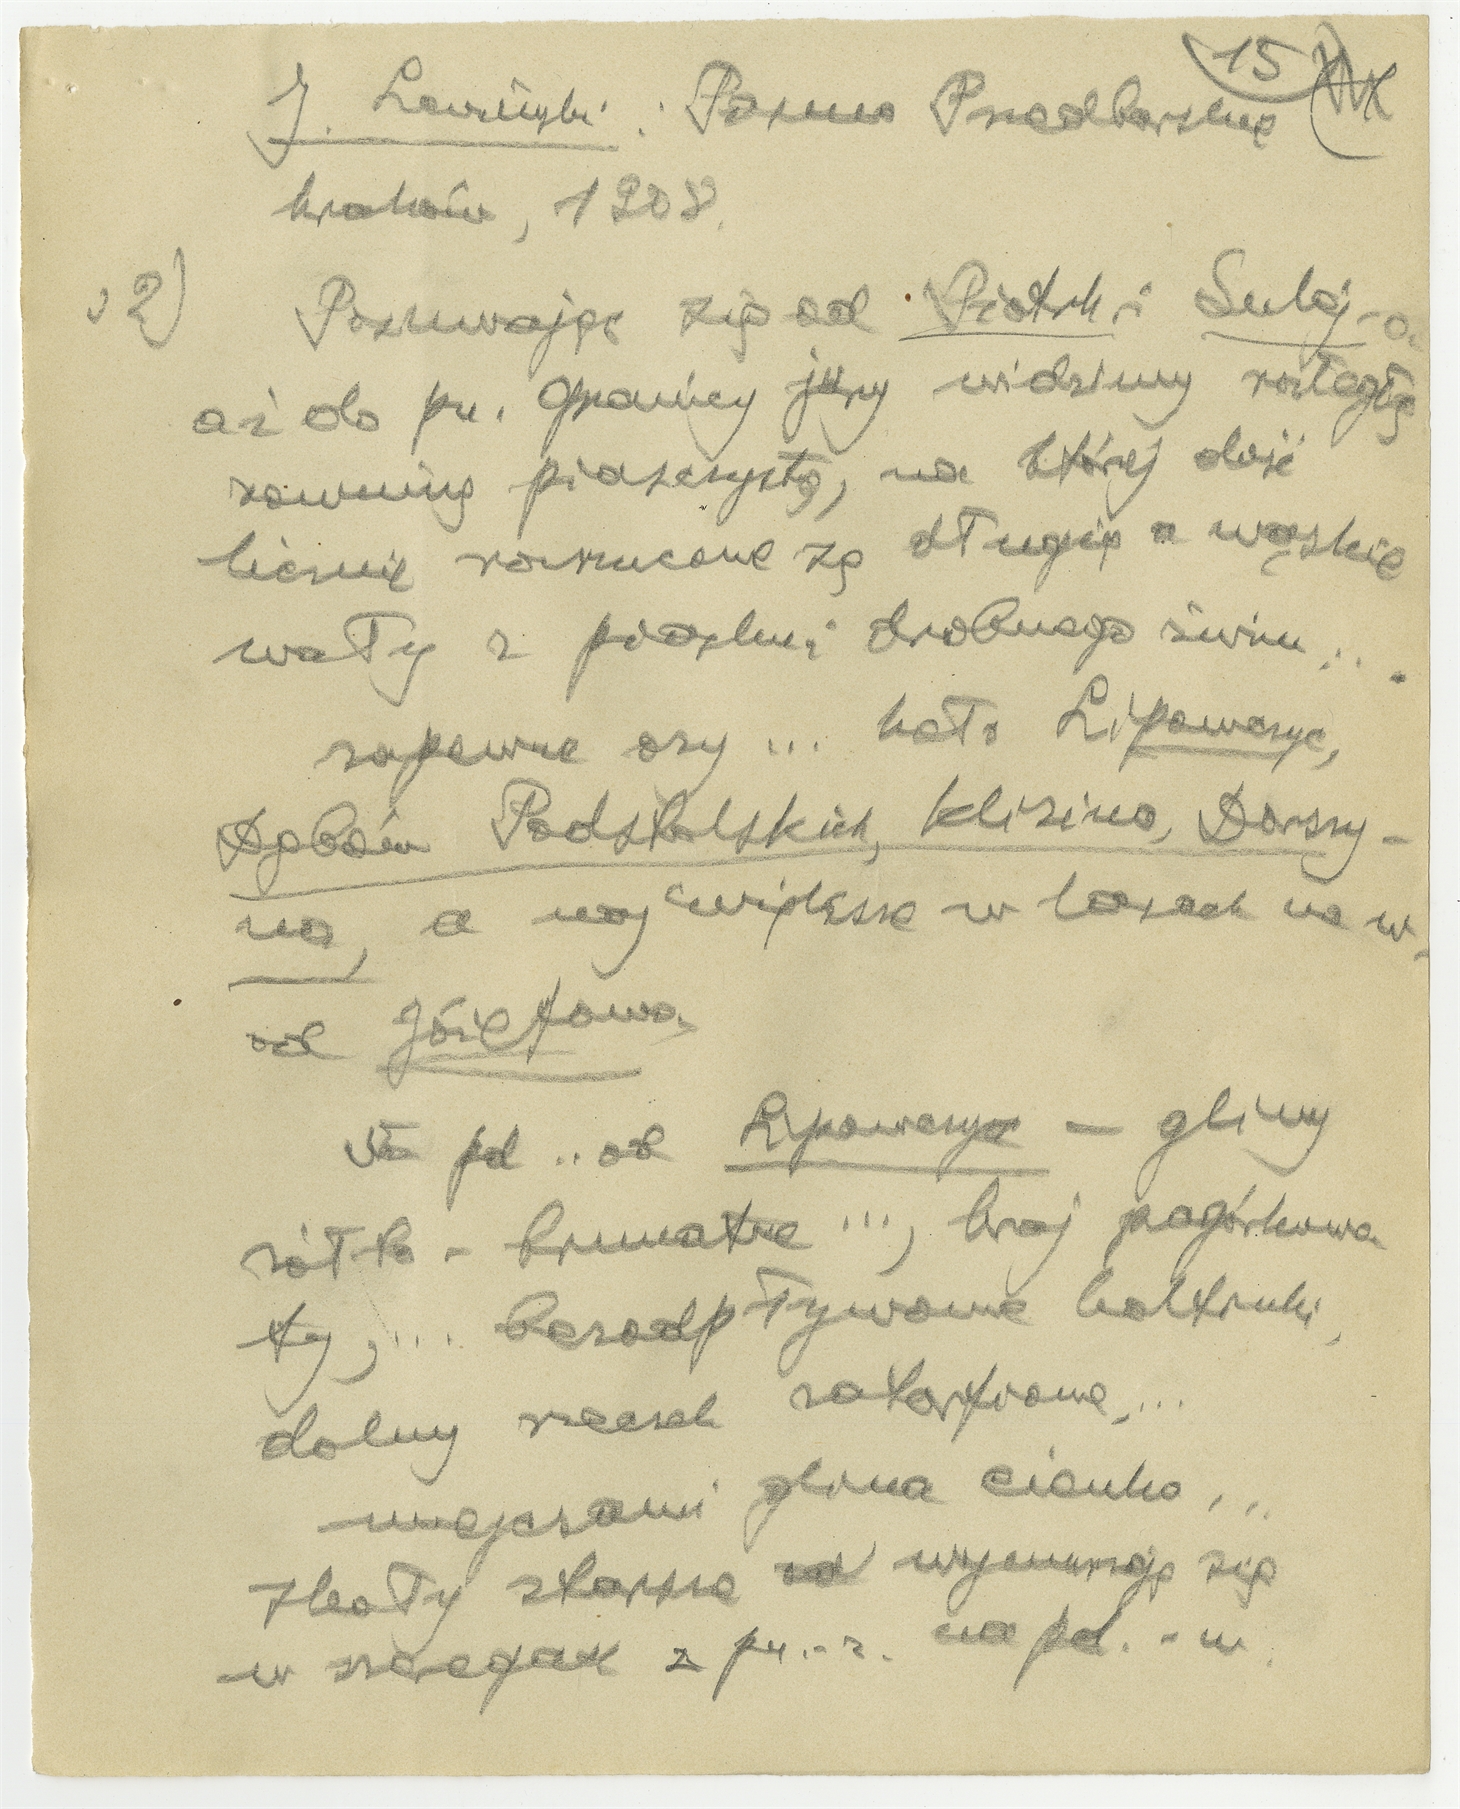 15
J. Lewiński: Pasmo Przedborskie
Kraków, 1908.
2) Posuwając się od Piotrk i Sulej-a
aż do pn. granicy jury widzimy rozległą
równinę piaszczystą, na której dość
licznie rozrzucone są długie a wąskie
wały z piasku i drobnego żwiru...
zapewne ozy ... koło Lipowczyc,
Dębów Podstolskich, Klizina, Dorszy-
na, a największe w lasach na w.
od Józefowa.
Na pd .. od Lipowczyc – gliny
żółto-brunatne ..., kraj pagórkowa
ty, .... bezodpływowe kotlinki,
doliny rzeczek zatorfione, ...
miejscami glina cienka ...
skały starsze wynurzają się
w szeregach z pn.-z. na pd.-w.